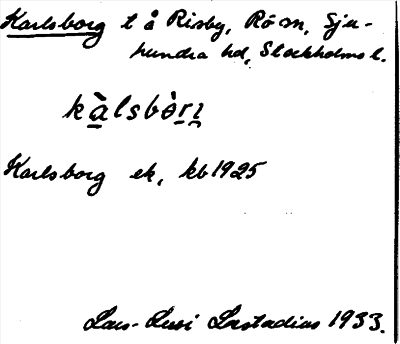 Karlsborg t å Risby, Rö sn, Sju-
hundra hd, Stockholms l.
kàlsbòrı
Karlsborg ek, kb 1925
Lars-Levi Læstadius 1933.